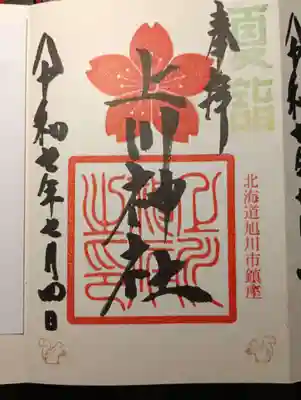 夏詣
奉拝
上川神社
北海道旭川市鎮座
令和七年七月四日